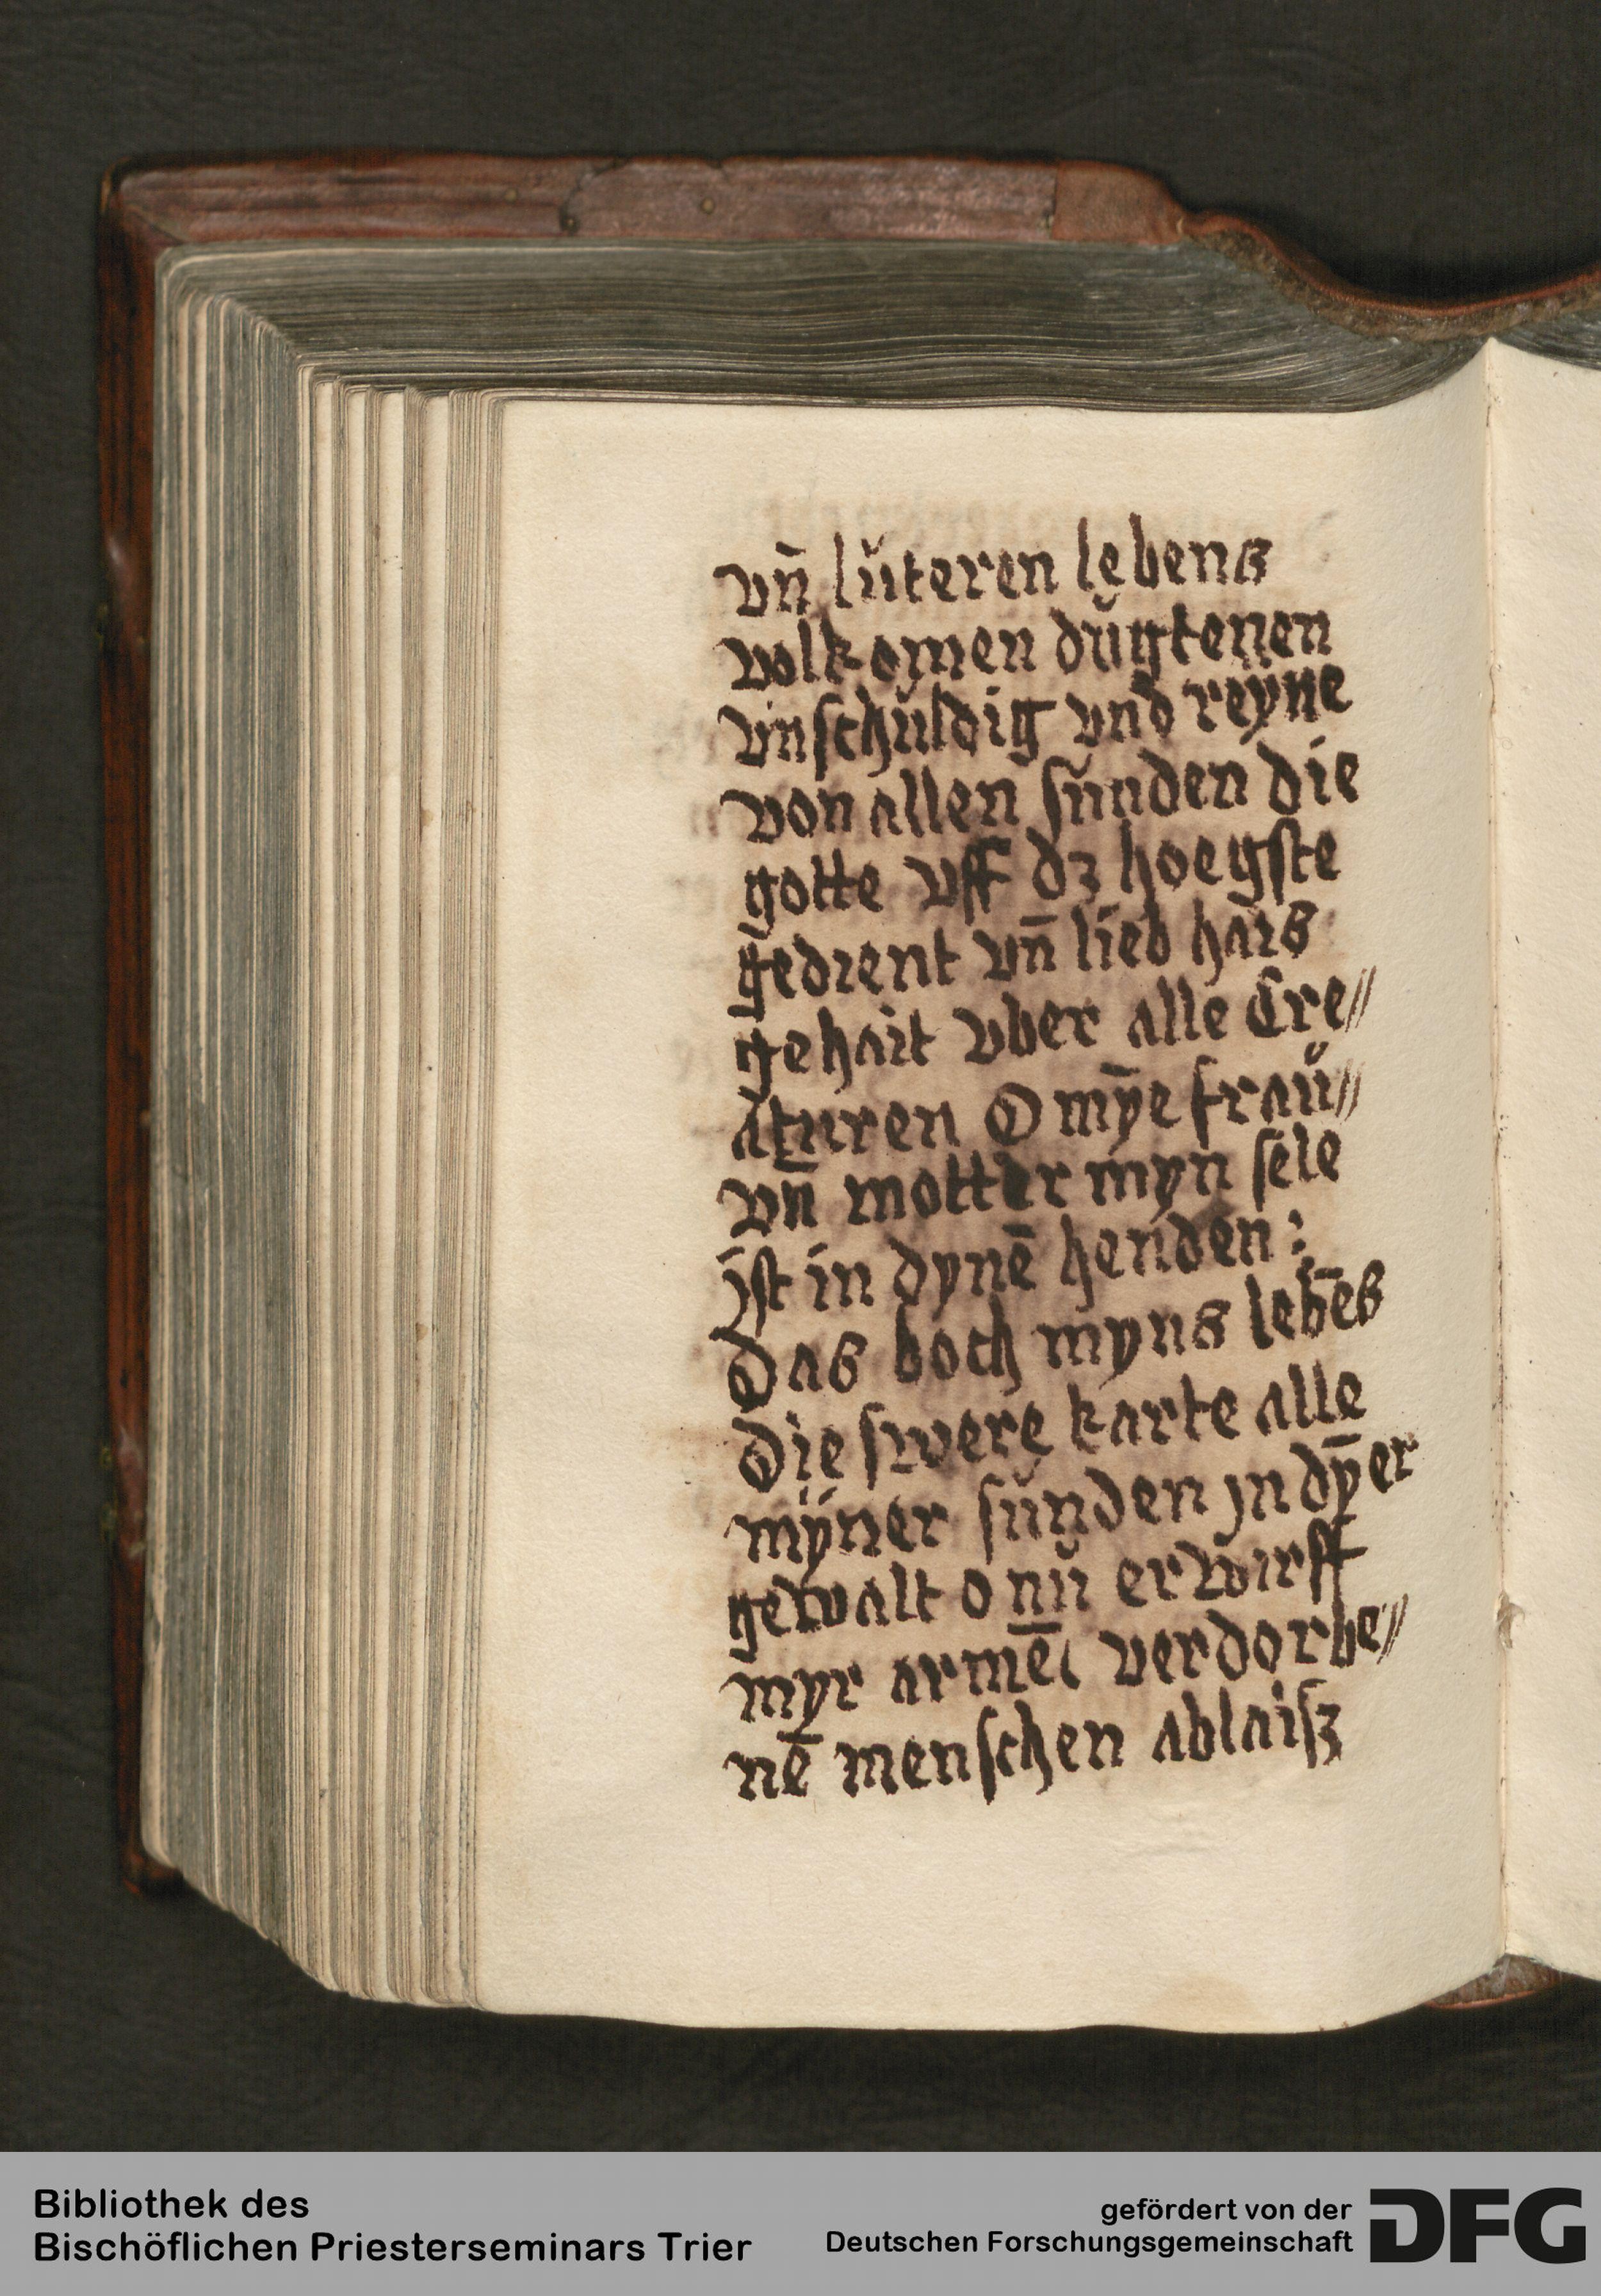 vn̄ lŭteren lebens
volkomen dŭgtenen
vnschŭldig vnd reyne
von allen sŭnden die
gotte vff dz hoegste
gedient vn̄ lieb hais
gehait vber alle Cre//
aturen O mȳe fraŭ//
vn̄ motter myn sele
ist in dynē henden :
Das boch myns lebēs
Die swere karte alle
mÿner sŭnden jn dȳer
gewalt o nŭ erwirff
myr armē verdorbe//
nē menschen ablaisz
Bibliothek des
Bischöflichen Priesterseminars Trier
gefördert von der
Deutschen Forschungsgemeinschaft
DFG